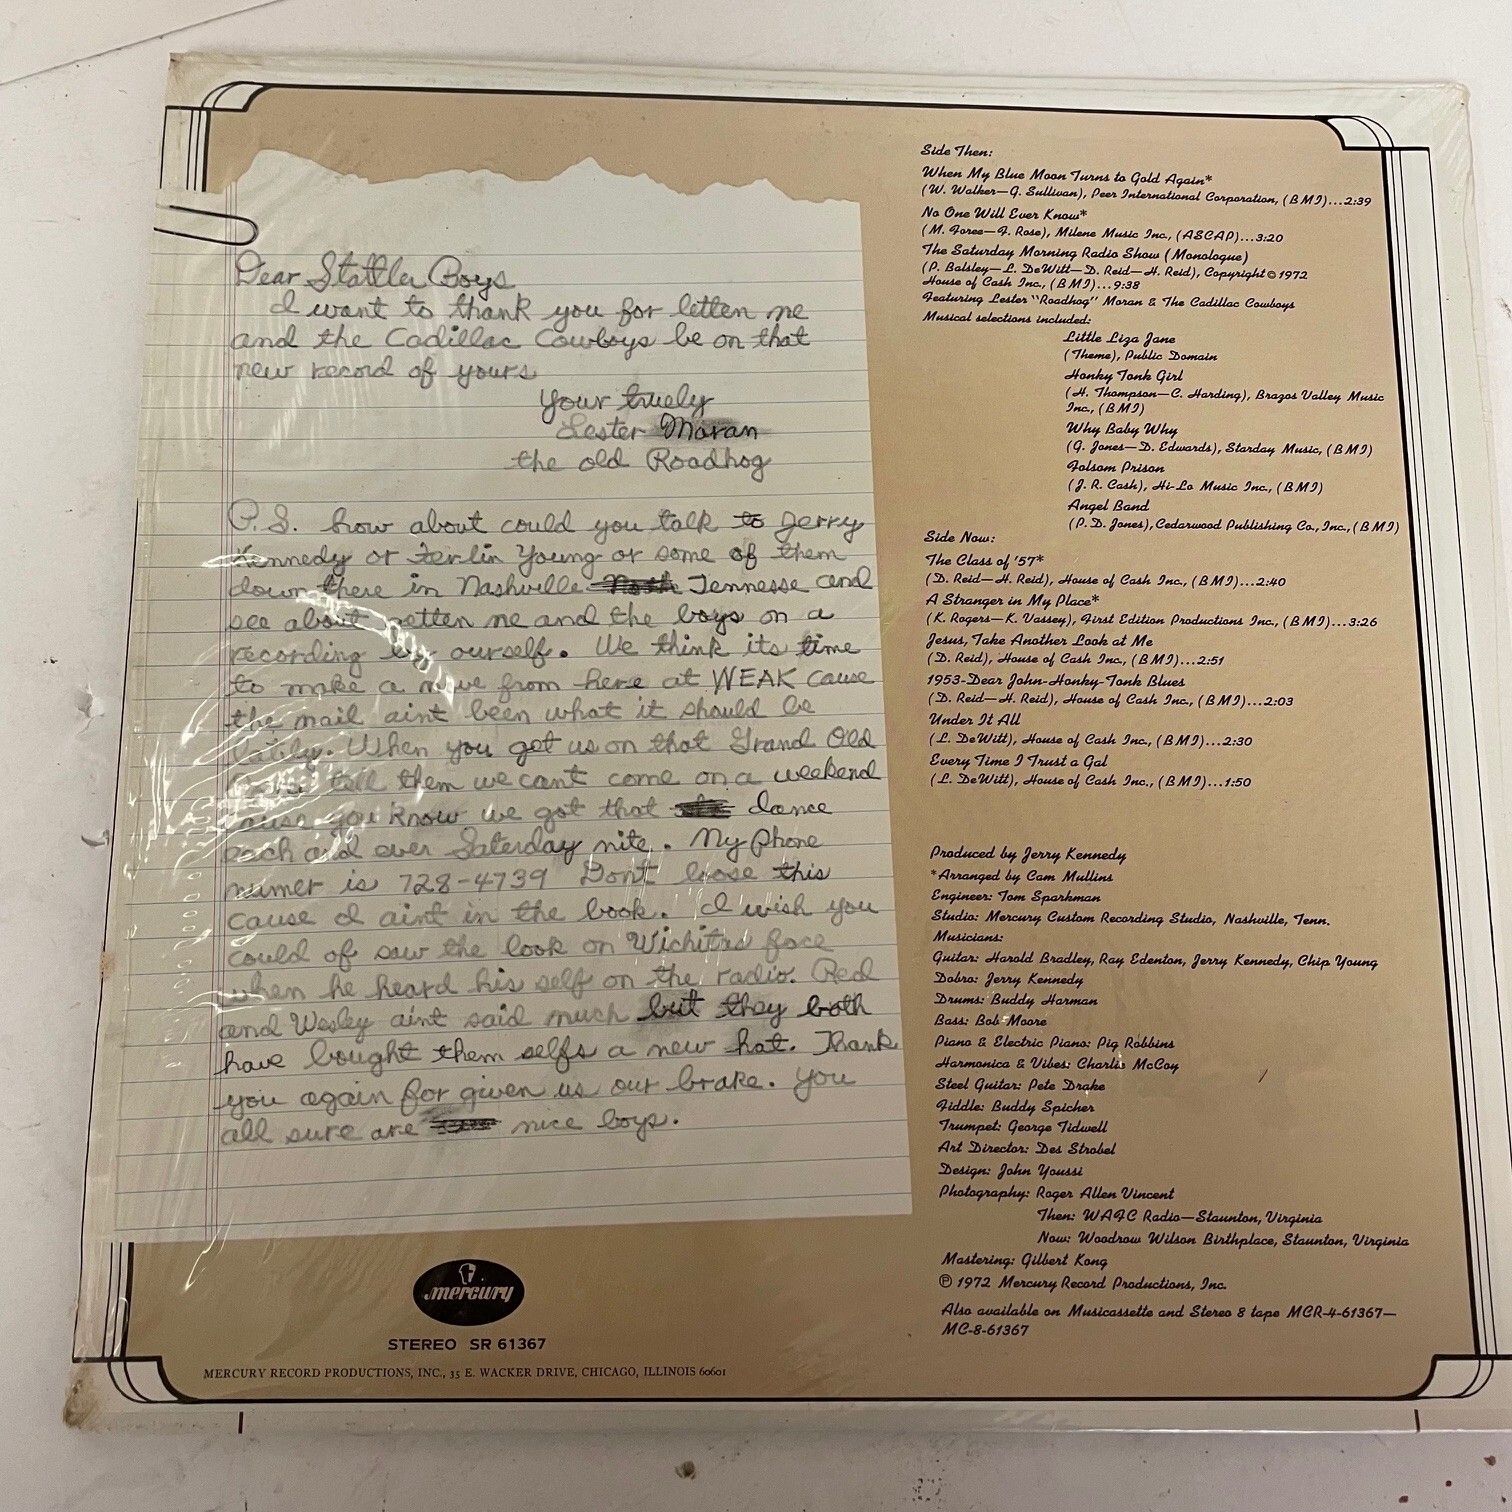 Dear Stattler Boys
I want to thank you for letten me
and the Cadillac Cowboys be on that
new record of yours
Your truely
Lester Moran
the old Roadhog
P.S. how about could you talk to Jerry
Kennedy or Ferlin Young or some of them
down there in Nashville Tennesse and
see about getten me and the boys on a
recording by ourself. We think its time
to make a move from here at WEAK cause
the mail aint been what it should be
lately. When you get us on that Grand Old
tell them we cant come on a weekend
cause you know we got that dance
each and ever Saterday nite. My phone
numer is 728-4739 Dont loose this
cause I aint in the book. I wish you
could of saw the look on Wichitas face
when he heard his self on the radio. Red
and Wesley aint said much but they both
have bought them selfs a new hat. Thank
you again for given us our brake. You
all sure are nice boys.
mercury
STEREO SR 61367
MERCURY RECORD PRODUCTIONS, INC., 35 E. WACKER DRIVE, CHICAGO, ILLINOIS 60601
Side Then:
When My Blue Moon Turns to Gold Again*
(W. Walker—G. Sullivan), Peer International Corporation, (BMI)...2:39
No One Will Ever Know*
(M. Foree—F. Rose), Milene Music Inc., (ASCAP)...3:20
The Saturday Morning Radio Show (Monologue)
(P. Balsley—L. DeWitt—D. Reid—H. Reid), Copyright © 1972
House of Cash Inc., (BMI)...9:38
Featuring Lester "Roadhog" Moran & The Cadillac Cowboys
Musical selections included:
Little Liza Jane
(Theme), Public Domain
Honky Tonk Girl
(H. Thompson—C. Harding), Brazos Valley Music
Inc., (BMI)
Why Baby Why
(G. Jones—D. Edwards), Starday Music, (BMI)
Folsom Prison
(J. R. Cash), Hi-Lo Music Inc., (BMI)
Angel Band
(P. D. Jones), Cedarwood Publishing Co., Inc., (BMI)
Side Now:
The Class of '57*
(D. Reid—H. Reid), House of Cash Inc., (BMI)...2:40
A Stranger in My Place*
(K. Rogers—K. Vassey), First Edition Productions Inc., (BMI)...3:26
Jesus, Take Another Look at Me
(D. Reid), House of Cash Inc., (BMI)...2:51
1953-Dear John-Honky-Tonk Blues
(D. Reid—H. Reid), House of Cash Inc., (BMI)...2:03
Under It All
(L. DeWitt), House of Cash Inc., (BMI)...2:30
Every Time I Trust a Gal
(L. DeWitt), House of Cash Inc., (BMI)...1:50
Produced by Jerry Kennedy
*Arranged by Cam Mullins
Engineer: Tom Sparkman
Studio: Mercury Custom Recording Studio, Nashville, Tenn.
Musicians:
Guitar: Harold Bradley, Ray Edenton, Jerry Kennedy, Chip Young
Dobro: Jerry Kennedy
Drums: Buddy Harman
Bass: Bob Moore
Piano & Electric Piano: Pig Robbins
Harmonica & Vibes: Charlie McCoy
Steel Guitar: Pete Drake
Fiddle: Buddy Spicher
Trumpet: George Tidwell
Art Director: Des Strobel
Design: John Youssi
Photography: Roger Allen Vincent
Then: WAFC Radio—Staunton, Virginia
Now: Woodrow Wilson Birthplace, Staunton, Virginia
Mastering: Gilbert Kong
℗ 1972 Mercury Record Productions, Inc.
Also available on Musicassette and Stereo 8 tape MCR-4-61367—
MC-8-61367